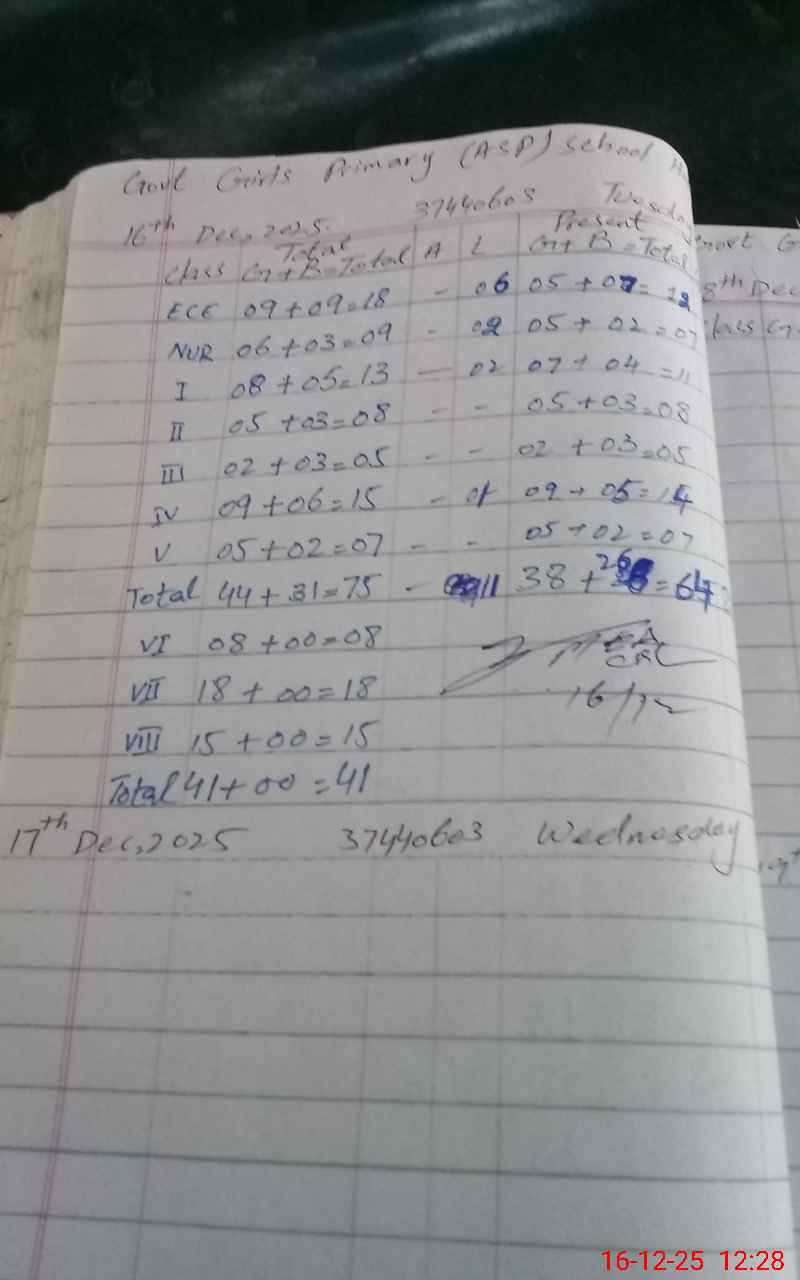 Govt Girls Primary (ASP) School
16th Dec, 2025. 37440603 Tuesda
Total Present
Class G+B=Total A L G+B=Total
ECE 09+09=18 - 06 05+07=12
NUR 06+03=09 - 02 05+02=07
I 08+05=13 - 02 07+04=11
II 05+03=08 - - 05+03=08
III 02+03=05 - - 02+03=05
IV 09+06=15 - 01 09+05=14
V 05+02=07 - - 05+02=07
Total 44+31=75 - 11 38+26=64
VI 08+00=08
VII 18+00=18
VIII 15+00=15
Total 41+00=41
16/12
17th Dec, 2025 37440603 Wednesday
8th Dec
Class G
16-12-25 12:28